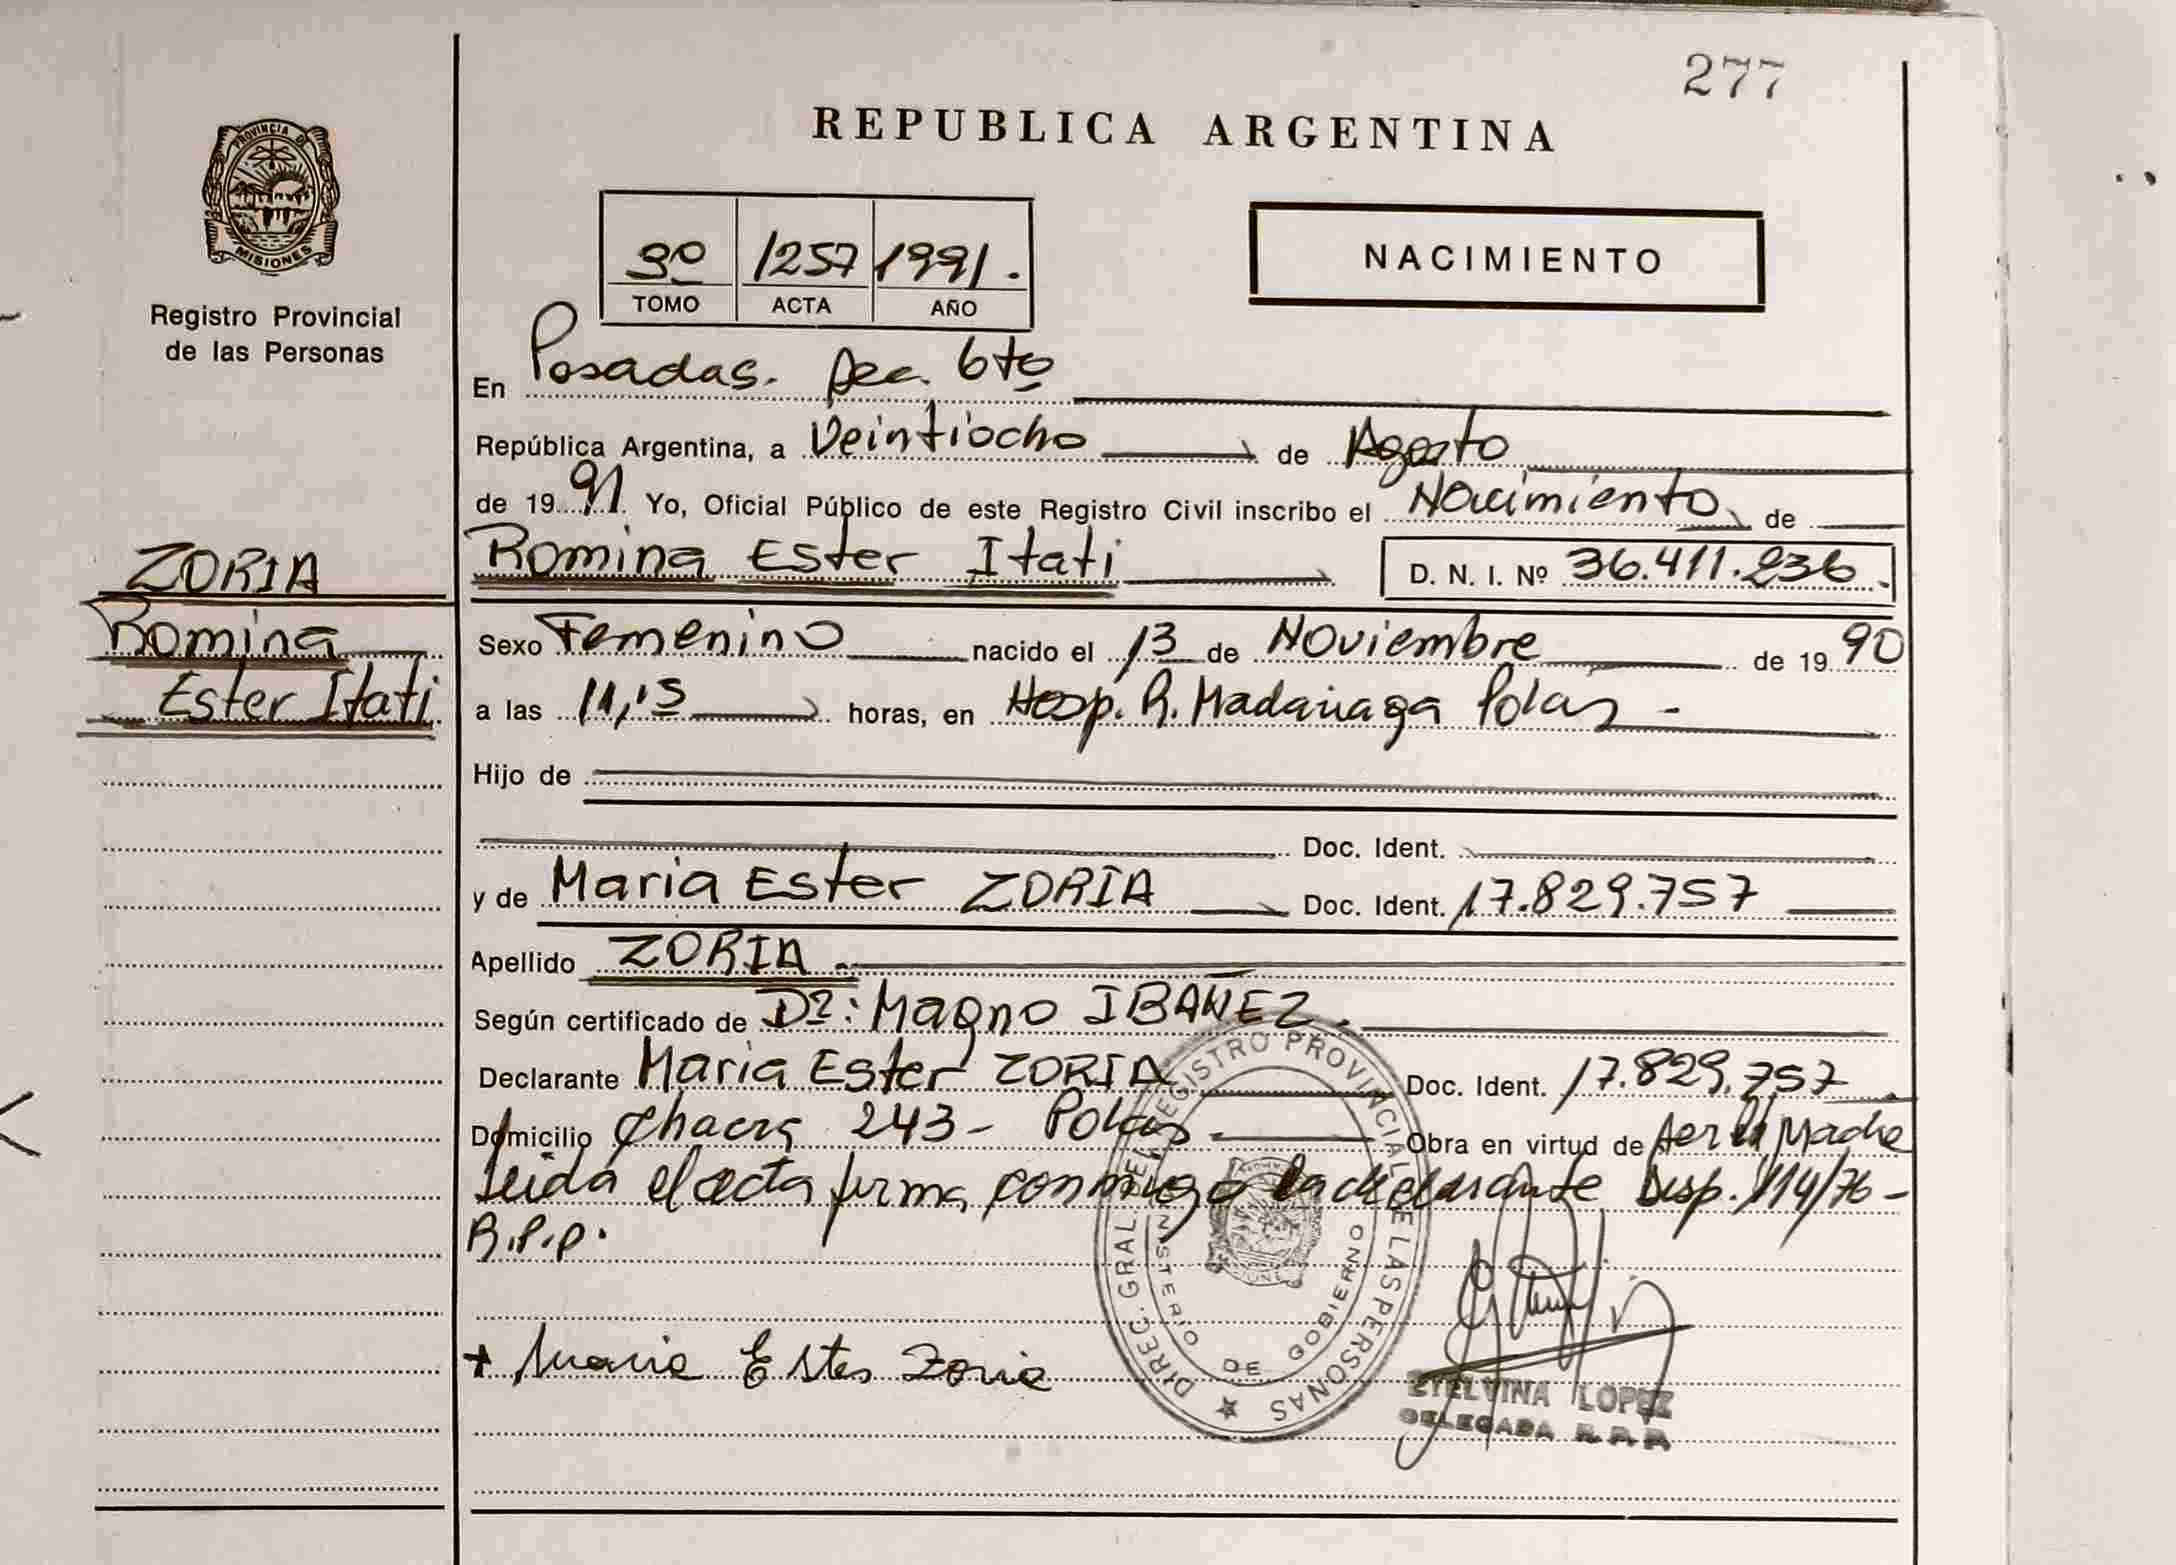 277
REPUBLICA ARGENTINA
PROVINCIA DE
MISIONES
Registro Provincial
de las Personas
3º 1257 1991.
TOMO ACTA AÑO
NACIMIENTO
En Posadas. Sec. 6to
República Argentina, a Veintiocho de Agosto
de 1991 Yo, Oficial Público de este Registro Civil inscribo el Nacimiento de
ZORIA
Romina
Ester Itati
Romina Ester Itati D. N. I. Nº 36.411.236.
Sexo Femenino nacido el 13 de Noviembre de 1990
a las 11,15 horas, en Hosp. R. Madariaga Pdas -
Hijo de
Doc. Ident.
y de Maria Ester ZORIA Doc. Ident. 17.829.757
Apellido ZORIA.
Según certificado de Dº: Magno IBAÑEZ.
Declarante Maria Ester ZORIA Doc. Ident. 17.829.757
Domicilio Chacra 243 - Pdas. Obra en virtud de ser la Madre
Leida el acta firma conmigo la declarante Disp. 114/76 -
R.P.P.
DIREC. GRAL DEL REGISTRO PROVINCIAL DE LAS PERSONAS
MINISTERIO DE GOBIERNO
+ Maria Ester Zoria
ETELVINA LOPEZ
DELEGADA R.P.P.